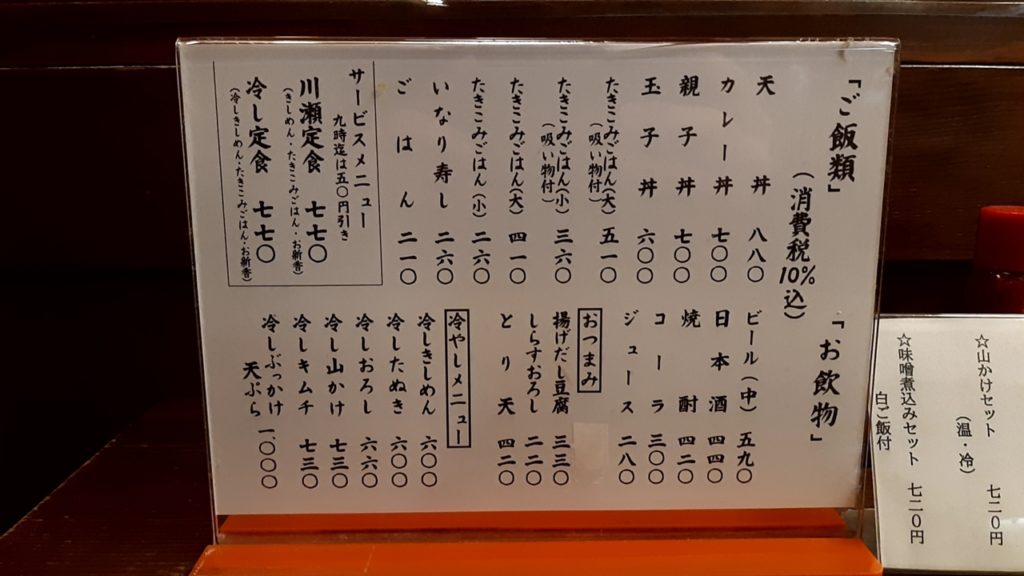 「ご飯類」
(消費税10%込)
天丼 八八〇
カレー丼 七〇〇
親子丼 七〇〇
玉子丼 六〇〇
たきこみごはん(大) 五一〇
(吸い物付)
たきこみごはん(小) 三六〇
(吸い物付)
たきこみごはん(大) 四一〇
たきこみごはん(小) 二六〇
いなり寿し 二六〇
ごはん 二一〇
サービスメニュー
九時迄は五〇円引き
川瀬定食 七七〇
(きしめん・たきこみごはん・お新香)
冷し定食 七七〇
(冷しきしめん・たきこみごはん・お新香)
「お飲物」
ビール(中) 五九〇
日本酒 四四〇
焼酎 四二〇
コーラ 三〇〇
ジュース 二八〇
おつまみ
揚げだし豆腐 三三〇
しらすおろし 二二〇
とり天 四二〇
冷やしメニュー
冷しきしめん 六〇〇
冷したぬき 六〇〇
冷しおろし 六六〇
冷し山かけ 七三〇
冷しキムチ 七三〇
冷しぶっかけ
天ぷら 一、〇〇〇
☆山かけセット 七二〇円
(温・冷)
☆味噌煮込みセット 七二〇円
白ご飯付